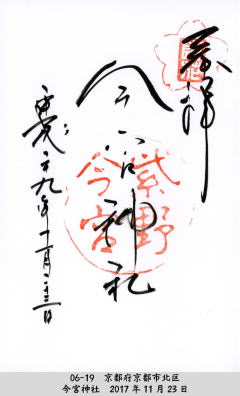 奉拝
今宮神社
紫野
今宮
平成二十九年十一月二十三日
06-19 京都府京都市北区
今宮神社 2017年11月23日